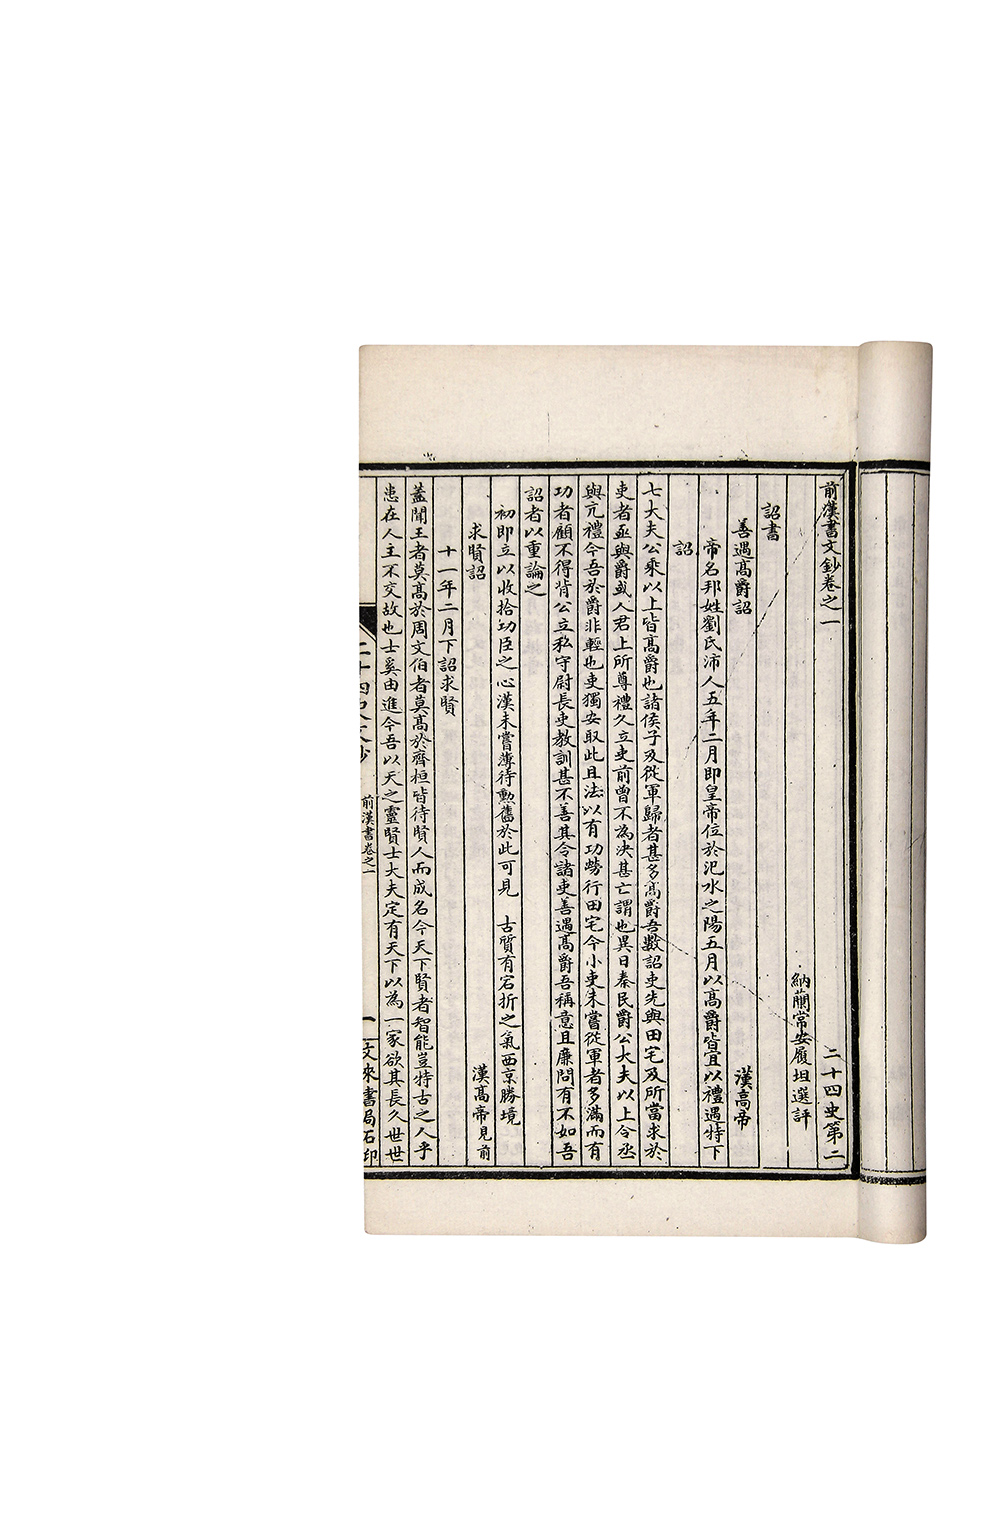 前漢書文鈔卷之一　二十四史第二
納蘭常安履坦選評
詔書
善遇高爵詔　漢高帝
帝名邦姓劉氏沛人五年二月即皇帝位於汜水之陽五月以高爵皆宜以禮遇特下
詔
七大夫公乘以上皆高爵也諸侯子及從軍歸者甚多高爵吾數詔吏先與田宅及所當求於
吏者亟與爵或人君上所尊禮久立吏前曾不為決甚亡謂也異日秦民爵公大夫以上令丞
與亢禮今吾於爵非輕也吏獨安取此且法以有功勞行田宅今小吏未嘗從軍者多滿而有
功者顧不得背公立私守尉長吏教訓甚不善其令諸吏善遇高爵吾稱意且廉問有不如吾
詔者以重論之
初即立以收拾功臣之心漢未嘗薄待勲舊於此可見　古質有宕折之氣西京勝境
求賢詔　漢高帝見前
十一年二月下詔求賢
蓋聞王者莫高於周文伯者莫高於齊桓皆待賢人而成名今天下賢者智能豈特古之人乎
患在人主不交故也士奚由進今吾以天之靈賢士大夫定有天下以為一家欲其長久世世
二十四史文鈔　前漢書卷之一　一　文來書局石印